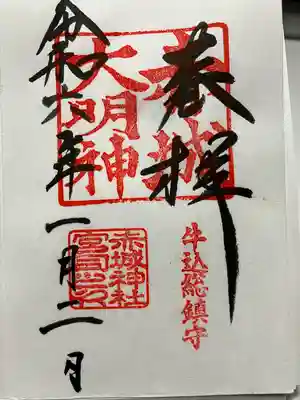 奉拝
赤城
大明神
牛込総鎮守
赤城神社
宮司之印
令和六年一月二日